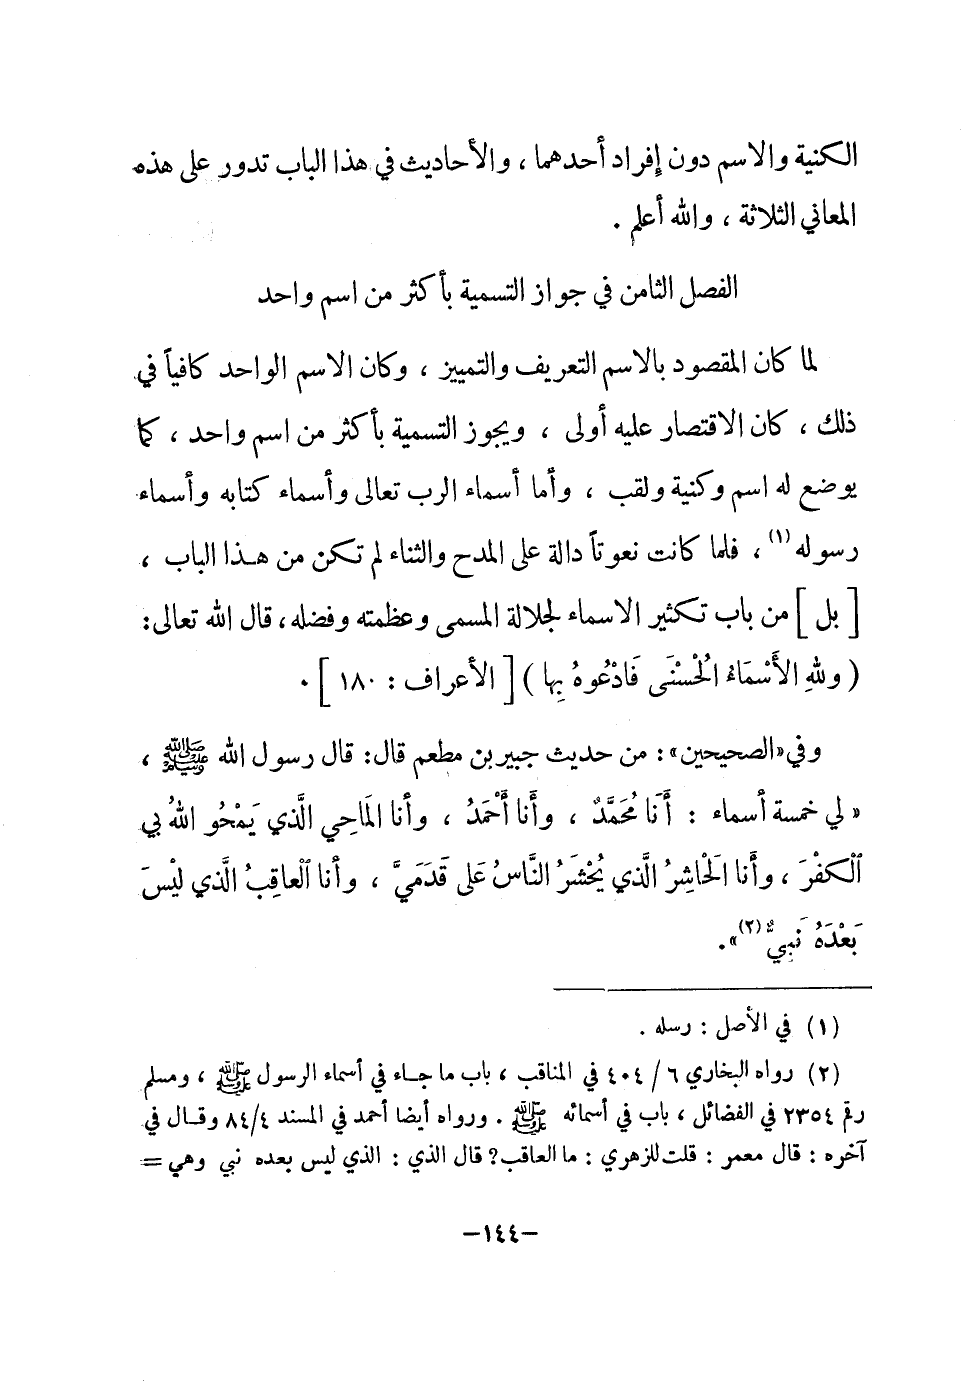 الكنية والاسم دون إفراد أحدهما ، والأحاديث في هذا الباب تدور على هذه
المعاني الثلاثة ، والله أعلم .
الفصل الثامن في جواز التسمية بأكثر من اسم واحد
لما كان المقصود بالاسم التعريف والتمييز ، وكان الاسم الواحد كافياً في
ذلك ، كان الاقتصار عليه أولى ، ويجوز التسمية بأكثر من اسم واحد ، كما
يوضع له اسم وكنية ولقب ، وأما أسماء الرب تعالى وأسماء كتابه وأسماء
رسوله (١) ، فلما كانت نعوتاً دالة على المدح والثناء لم تكن من هذا الباب ،
[ بل ] من باب تكثير الاسماء لجلالة المسمى وعظمته وفضله، قال الله تعالى:
( وللهِ الأَسْمَاءُ الحُسْنَى فَادْعُوهُ بِها ) [ الأعراف : ١٨٠ ] .
وفي «الصحيحين» : من حديث جبير بن مطعم قال: قال رسول الله ﷺ ،
« لي خمسة أسماء : أَنا مُحَمَّدٌ ، وأَنا أَحْمَدُ ، وأنا المَاحِي الَّذي يَمْحُو اللهُ بي
الْكفْرَ ، وأَنا الحَاشِرُ الَّذي يُحْشَرُ النَّاسُ عَلى قَدَمَيَّ ، وأنا العاقِبُ الَّذي لَيْسَ
بَعْدَهُ نَبِيٌّ (٢) » .
(١) في الأصل : رسله .
(٢) رواه البخاري ٦ / ٤٠٤ في المناقب ، باب ما جاء في أسماء الرسول ﷺ ، ومسلم
رقم ٢٣٥٤ في الفضائل ، باب في أسمائه ﷺ . ورواه أيضا أحمد في المسند ٨٤/٤ وقال في
آخره : قال معمر : قلت للزهري : ما العاقب؟ قال الذي : الذي ليس بعده نبي وهي =
-١٤٤-